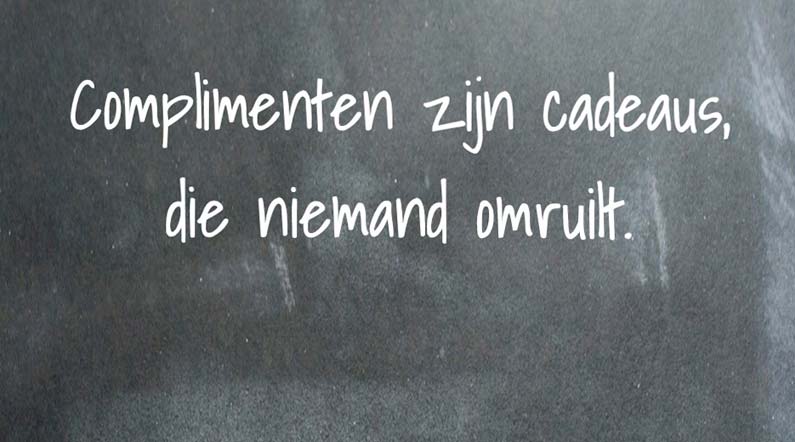 Complimenten zijn cadeaus,
die niemand omruilt.